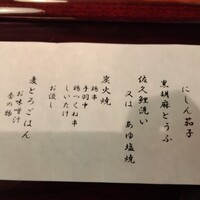 にしん茄子
黒胡麻とうふ
佐久鯉洗い
又は あゆ塩焼
炭火焼
鶏串
手羽中
鶏つくね串
しいたけ
お浸し
麦とろごはん
お味噌汁
香の物